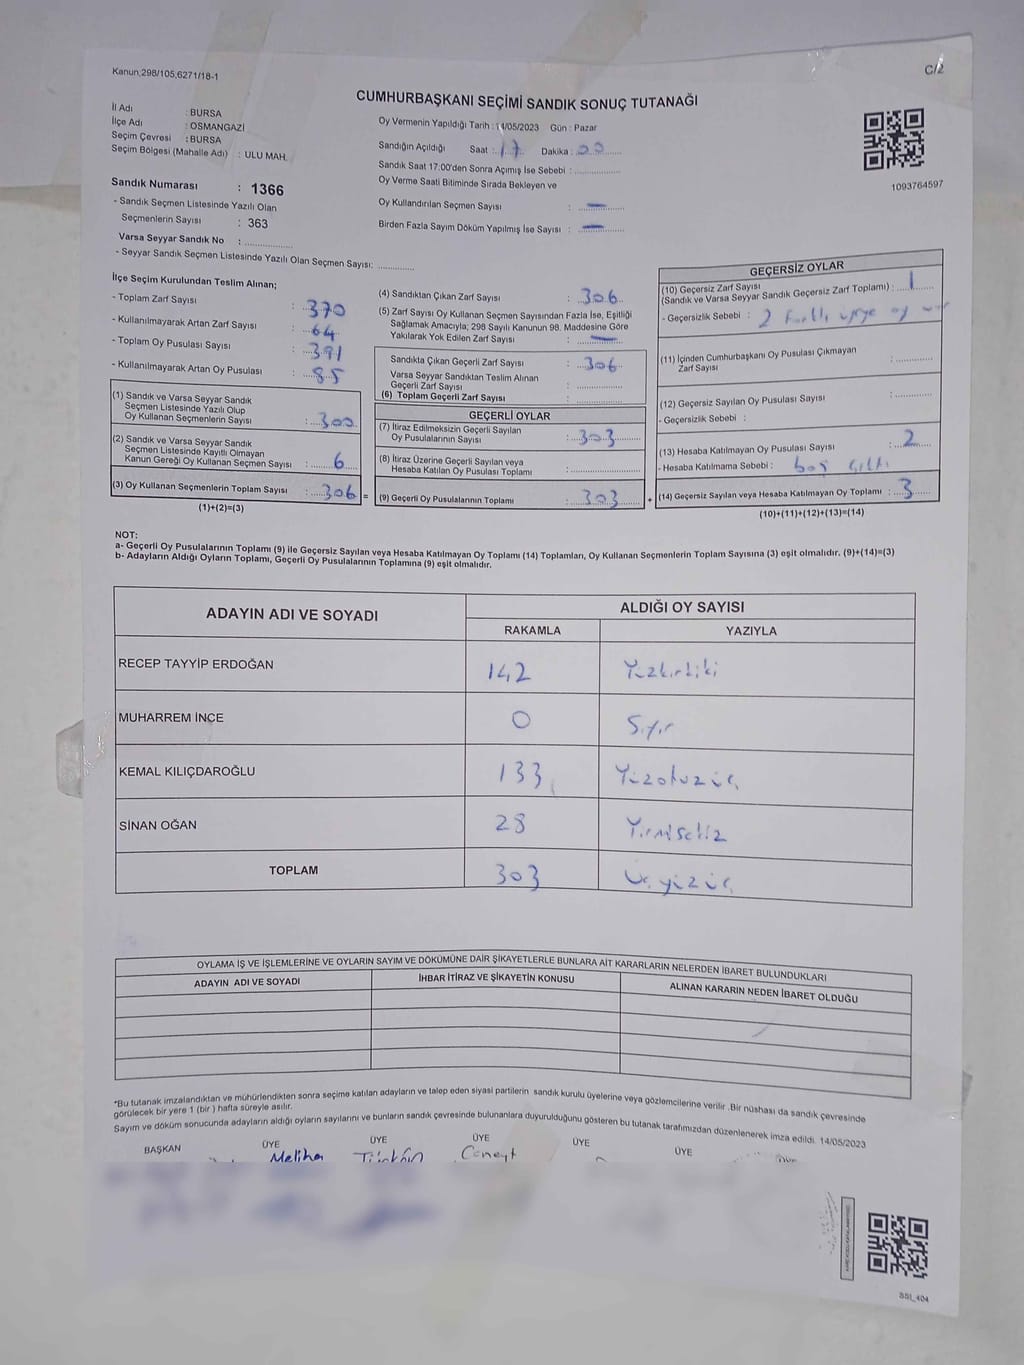 Kanun,298/105,6271/18-1
C/2
CUMHURBAŞKANI SEÇİMİ SANDIK SONUÇ TUTANAĞI
İl Adı : BURSA
İlçe Adı : OSMANGAZİ
Seçim Çevresi : BURSA
Seçim Bölgesi (Mahalle Adı) : ULU MAH.
Sandık Numarası : 1366
- Sandık Seçmen Listesinde Yazılı Olan
Seçmenlerin Sayısı : 363
Varsa Seyyar Sandık No :
- Seyyar Sandık Seçmen Listesinde Yazılı Olan Seçmen Sayısı:
Oy Vermenin Yapıldığı Tarih : 14/05/2023 Gün : Pazar
Sandığın Açıldığı Saat : 17 Dakika : 00
Sandık Saat 17:00'den Sonra Açımış İse Sebebi :
Oy Verme Saati Bitiminde Sırada Bekleyen ve
Oy Kullandırılan Seçmen Sayısı : —
Birden Fazla Sayım Döküm Yapılmış İse Sayısı : —
1093764597
İlçe Seçim Kurulundan Teslim Alınan;
- Toplam Zarf Sayısı : 370
- Kullanılmayarak Artan Zarf Sayısı : 64
- Toplam Oy Pusulası Sayısı : 391
- Kullanılmayarak Artan Oy Pusulası : 85
(1) Sandık ve Varsa Seyyar Sandık
Seçmen Listesinde Yazılı Olup
Oy Kullanan Seçmenlerin Sayısı : 300
(2) Sandık ve Varsa Seyyar Sandık
Seçmen Listesinde Kayıtlı Olmayan
Kanun Gereği Oy Kullanan Seçmen Sayısı : 6
(3) Oy Kullanan Seçmenlerin Toplam Sayısı : 306 =
(1)+(2)=(3)
(4) Sandıktan Çıkan Zarf Sayısı : 306
(5) Zarf Sayısı Oy Kullanan Seçmen Sayısından Fazla İse, Eşitliği
Sağlamak Amacıyla; 298 Sayılı Kanunun 98. Maddesine Göre
Yakılarak Yok Edilen Zarf Sayısı : —
Sandıkta Çıkan Geçerli Zarf Sayısı : 306
Varsa Seyyar Sandıktan Teslim Alınan
Geçerli Zarf Sayısı :
(6) Toplam Geçerli Zarf Sayısı :
GEÇERLİ OYLAR
(7) İtiraz Edilmeksizin Geçerli Sayılan
Oy Pusulalarının Sayısı : 303
(8) İtiraz Üzerine Geçerli Sayılan veya
Hesaba Katılan Oy Pusulası Toplamı :
(9) Geçerli Oy Pusulalarının Toplamı : 303 +
GEÇERSİZ OYLAR
(10) Geçersiz Zarf Sayısı
(Sandık ve Varsa Seyyar Sandık Geçersiz Zarf Toplamı) : 1
- Geçersizlik Sebebi : 2 farklı oy
(11) İçinden Cumhurbaşkanı Oy Pusulası Çıkmayan
Zarf Sayısı :
(12) Geçersiz Sayılan Oy Pusulası Sayısı :
- Geçersizlik Sebebi :
(13) Hesaba Katılmayan Oy Pusulası Sayısı : 2
- Hesaba Katılmama Sebebi : boş çıktı
(14) Geçersiz Sayılan veya Hesaba Katılmayan Oy Toplamı : 3
(10)+(11)+(12)+(13)=(14)
NOT:
a- Geçerli Oy Pusulalarının Toplamı (9) ile Geçersiz Sayılan veya Hesaba Katılmayan Oy Toplamı (14) Toplamları, Oy Kullanan Seçmenlerin Toplam Sayısına (3) eşit olmalıdır. (9)+(14)=(3)
b- Adayların Aldığı Oyların Toplamı, Geçerli Oy Pusulalarının Toplamına (9) eşit olmalıdır.
ADAYIN ADI VE SOYADI
ALDIĞI OY SAYISI
RAKAMLA YAZIYLA
RECEP TAYYİP ERDOĞAN 142 Yüzkırkiki
MUHARREM İNCE 0 Sıfır
KEMAL KILIÇDAROĞLU 133 Yüzotuzüç
SİNAN OĞAN 28 Yirmisekiz
TOPLAM 303 Üçyüzüç
OYLAMA İŞ VE İŞLEMLERİNE VE OYLARIN SAYIM VE DÖKÜMÜNE DAİR ŞİKAYETLERLE BUNLARA AİT KARARLARIN NELERDEN İBARET BULUNDUKLARI
ADAYIN ADI VE SOYADI İHBAR İTİRAZ VE ŞİKAYETİN KONUSU ALINAN KARARIN NEDEN İBARET OLDUĞU
*Bu tutanak imzalandıktan ve mühürlendikten sonra seçime katılan adayların ve talep eden siyasi partilerin sandık kurulu üyelerine veya gözlemcilerine verilir .Bir nüshası da sandık çevresinde
görülecek bir yere 1 (bir ) hafta süreyle asılır.
Sayım ve döküm sonucunda adayların aldığı oyların sayılarını ve bunların sandık çevresinde bulunanlara duyurulduğunu gösteren bu tutanak tarafımızdan düzenlenerek imza edildi. 14/05/2023
BAŞKAN ÜYE ÜYE ÜYE ÜYE ÜYE
Meliha Türkân Cüneyt
SSI_404